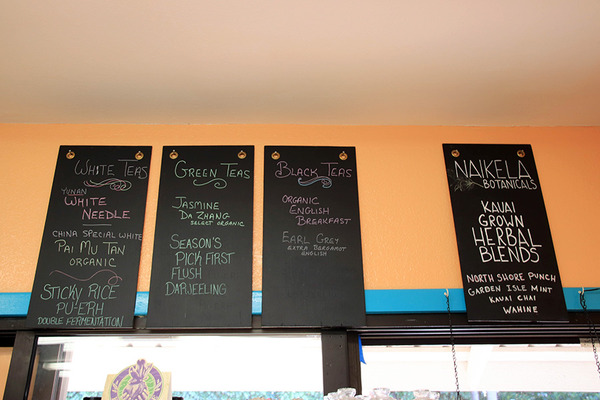 WHITE TEAS
YUNAN
WHITE
NEEDLE
CHINA SPECIAL WHITE
PAI MU TAN
ORGANIC
STICKY RICE
PU-ERH
DOUBLE FERMENTATION
GREEN TEAS
JASMINE
DA ZHANG
SELECT ORGANIC
SEASON'S
PICK FIRST
FLUSH
DARJEELING
BLACK TEAS
ORGANIC
ENGLISH
BREAKFAST
EARL GREY
EXTRA BERGAMOT
ENGLISH
NAIKELA
BOTANICALS
KAUAI
GROWN
HERBAL
BLENDS
NORTH SHORE PUNCH
GARDEN ISLE MINT
KAUAI CHAI
WAHINE